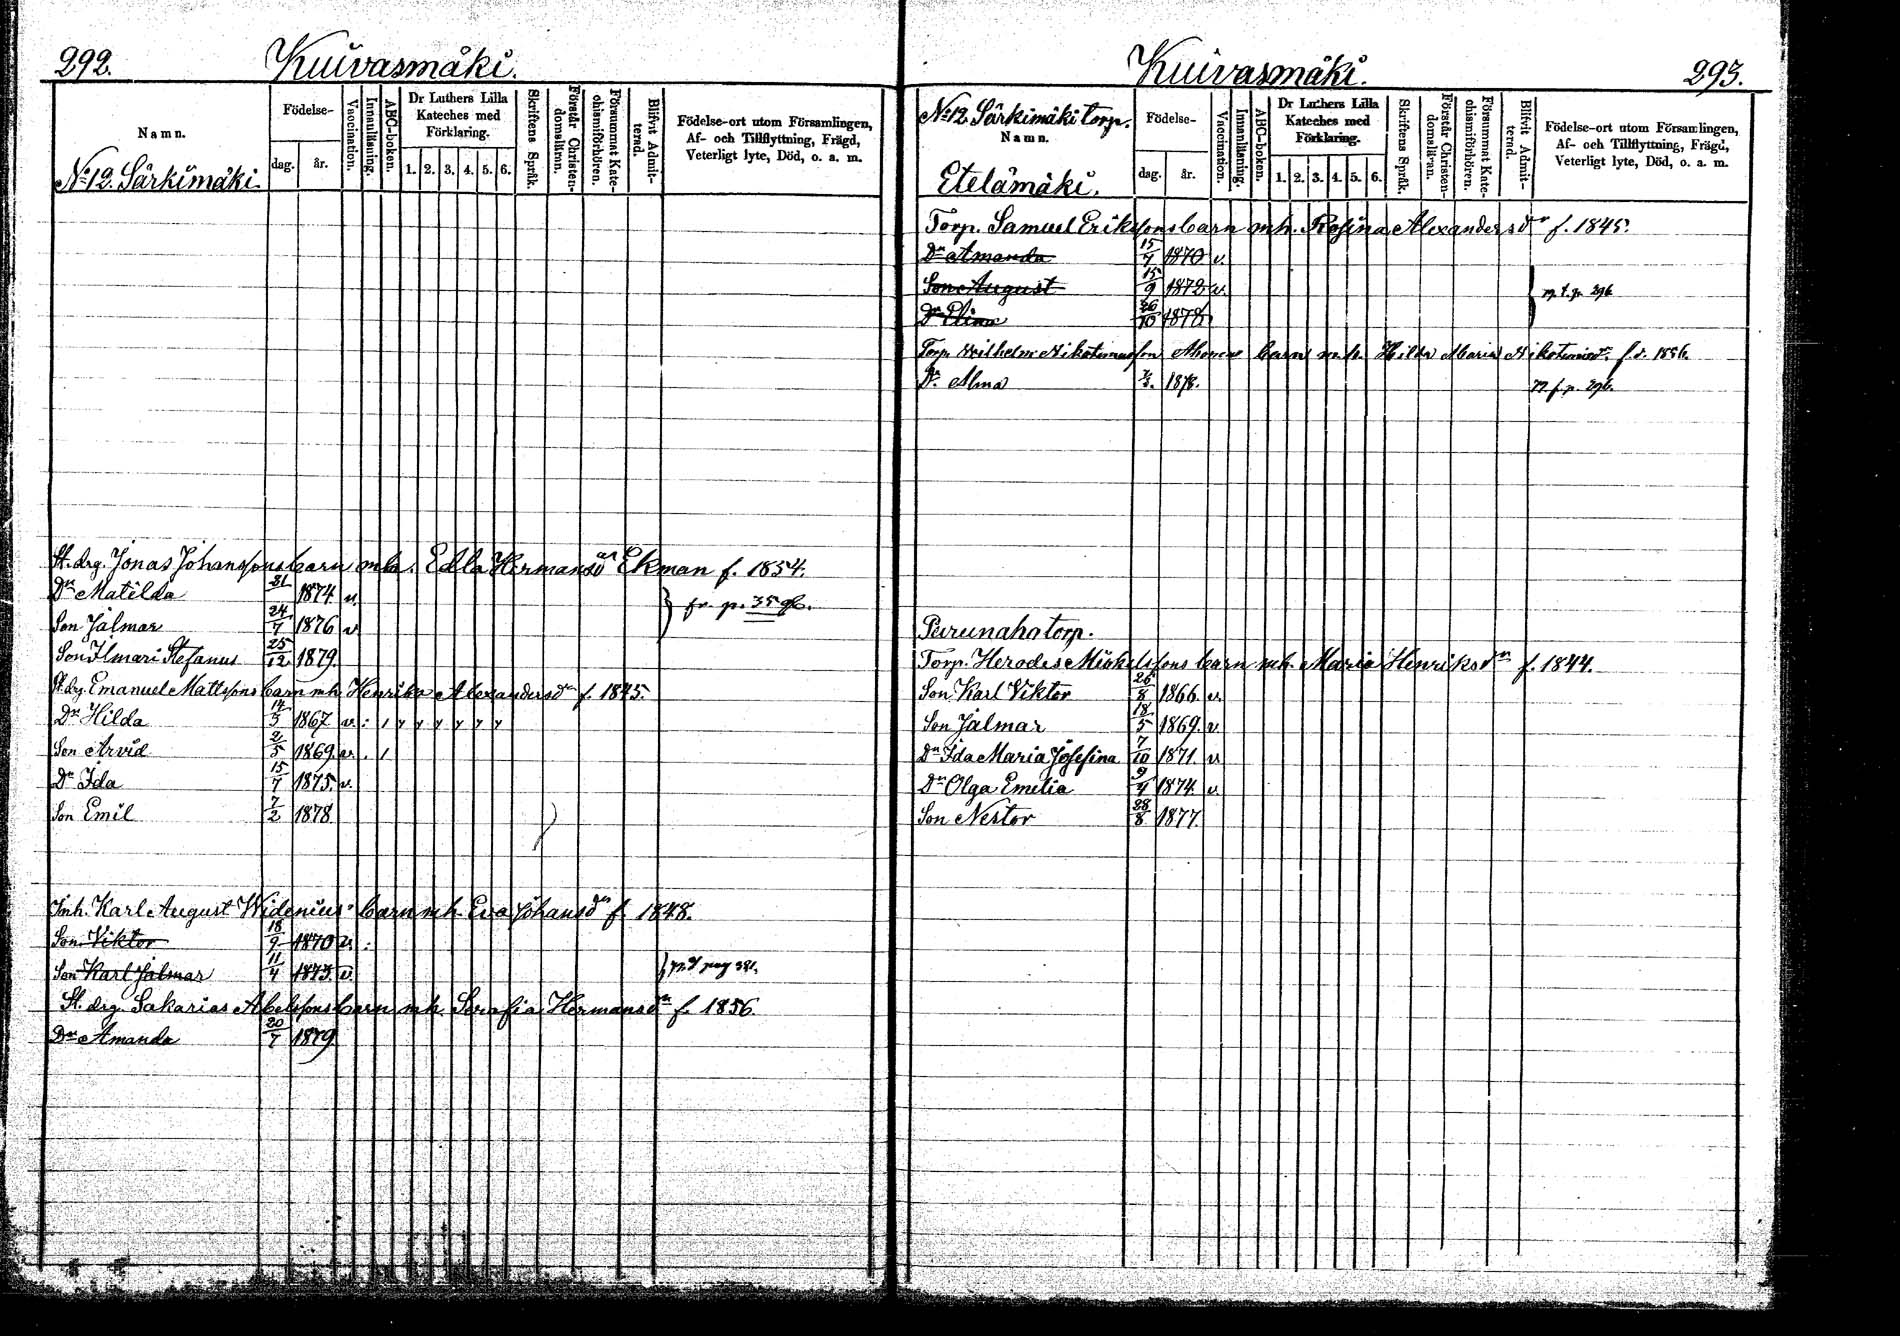 292.
Kuivasmäki.
Namn.
No 12. Särkimäki
Födelse-
dag.
år.
Vaccination.
Innanläsning.
ABC-boken.
Dr Luthers Lilla
Kateches med
Förklaring.
1. 2. 3. 4. 5. 6.
Skriftens Språk.
Förstår Christen-
domsläran.
Försummat Kate-
chismiförhören.
Blifvit Admit-
terad.
Födelse-ort utom Församlingen,
Af- och Tillflyttning, Frägd,
Veterligt lyte, Död, o. a. m.
St. drg. Jonas Johanssons barn mh. Edla Hermansdr Ekman f. 1854.
Dr Matilda 31 1874 v.
fr. p. 35
Son Jalmar 24/7 1876 v
Son Ilmari Stefanus 25/12 1879.
St. drg. Emanuel Mattssons barn mh. Henrika Alexandersdr f. 1845.
Dr Hilda 14/3 1867 v. : 1 y y y y y y
Son Arvid 2/5 1869. v. . 1
Dr Ida 15/7 1875. v.
Son Emil 7/2 1878
Inh. Karl August Widenius' barn mh. Eva Johansdr f. 1848.
Son Viktor 18/9 1870 v. :
Son Karl Jalmar 11/4 1873. v.
St. drg. Sakarias Abelssons barn mh. Serafia Hermansdr f. 1856.
Dr Amanda 20/7 1879
Kuivasmäki.
293.
No 12 Särkimäki torp.
Namn.
Etelämäki.
Födelse-
dag.
år.
Vaccination.
Innanläsning.
ABC-boken.
Dr Luthers Lilla
Kateches med
Förklaring.
1. 2. 3. 4. 5. 6.
Skriftens Språk.
Förstår Christen-
domsläran.
Försummat Kate-
chismiförhören.
Blifvit Admit-
terad.
Födelse-ort utom Församlingen,
Af- och Tillflyttning, Frägd,
Veterligt lyte, Död, o. a. m.
Torp. Samuel Erikssons barn mh. Rosina Alexandersdr f. 1845.
Dr Amanda 15/7 1870 v.
Son August 15/9 1872 v.
Dr Elina 26/10 1878
Torp. Wilhelm Nikotemusson Ahonens barn m.h. Hilda Maria Nikotemisdr f. 1856.
Dr Alma 1878.
Perunaho torp.
Torp. Herodes Mickelssons barn mh. Maria Henriksdr f. 1844.
Son Karl Viktor 26/8 1866 v.
Son Jalmar 18/5 1869. v
Dr Ida Maria Josefina 7/10 1871 v
Dr Olga Emelia 9/4 1874 v
Son Nestor 28/8 1877.